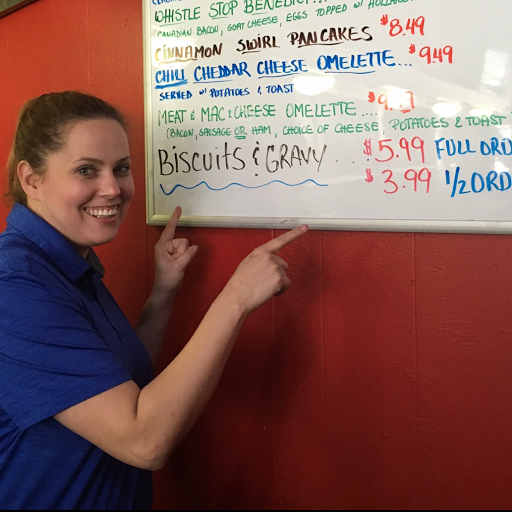 WHISTLE STOP BENEDICT...
CANADIAN BACON, GOAT CHEESE, EGGS TOPPED W/
CINNAMON SWIRL PANCAKES $8.49
CHILI CHEDDAR CHEESE OMELETTE... $9.49
SERVED W/ POTATOES & TOAST
MEAT & MAC & CHEESE OMELETTE ....
(BACON, SAUSAGE OR HAM, CHOICE OF CHEESE POTATOES & TOAST
BISCUITS & GRAVY ... $5.99 FULL ORD
$3.99 1/2 ORD